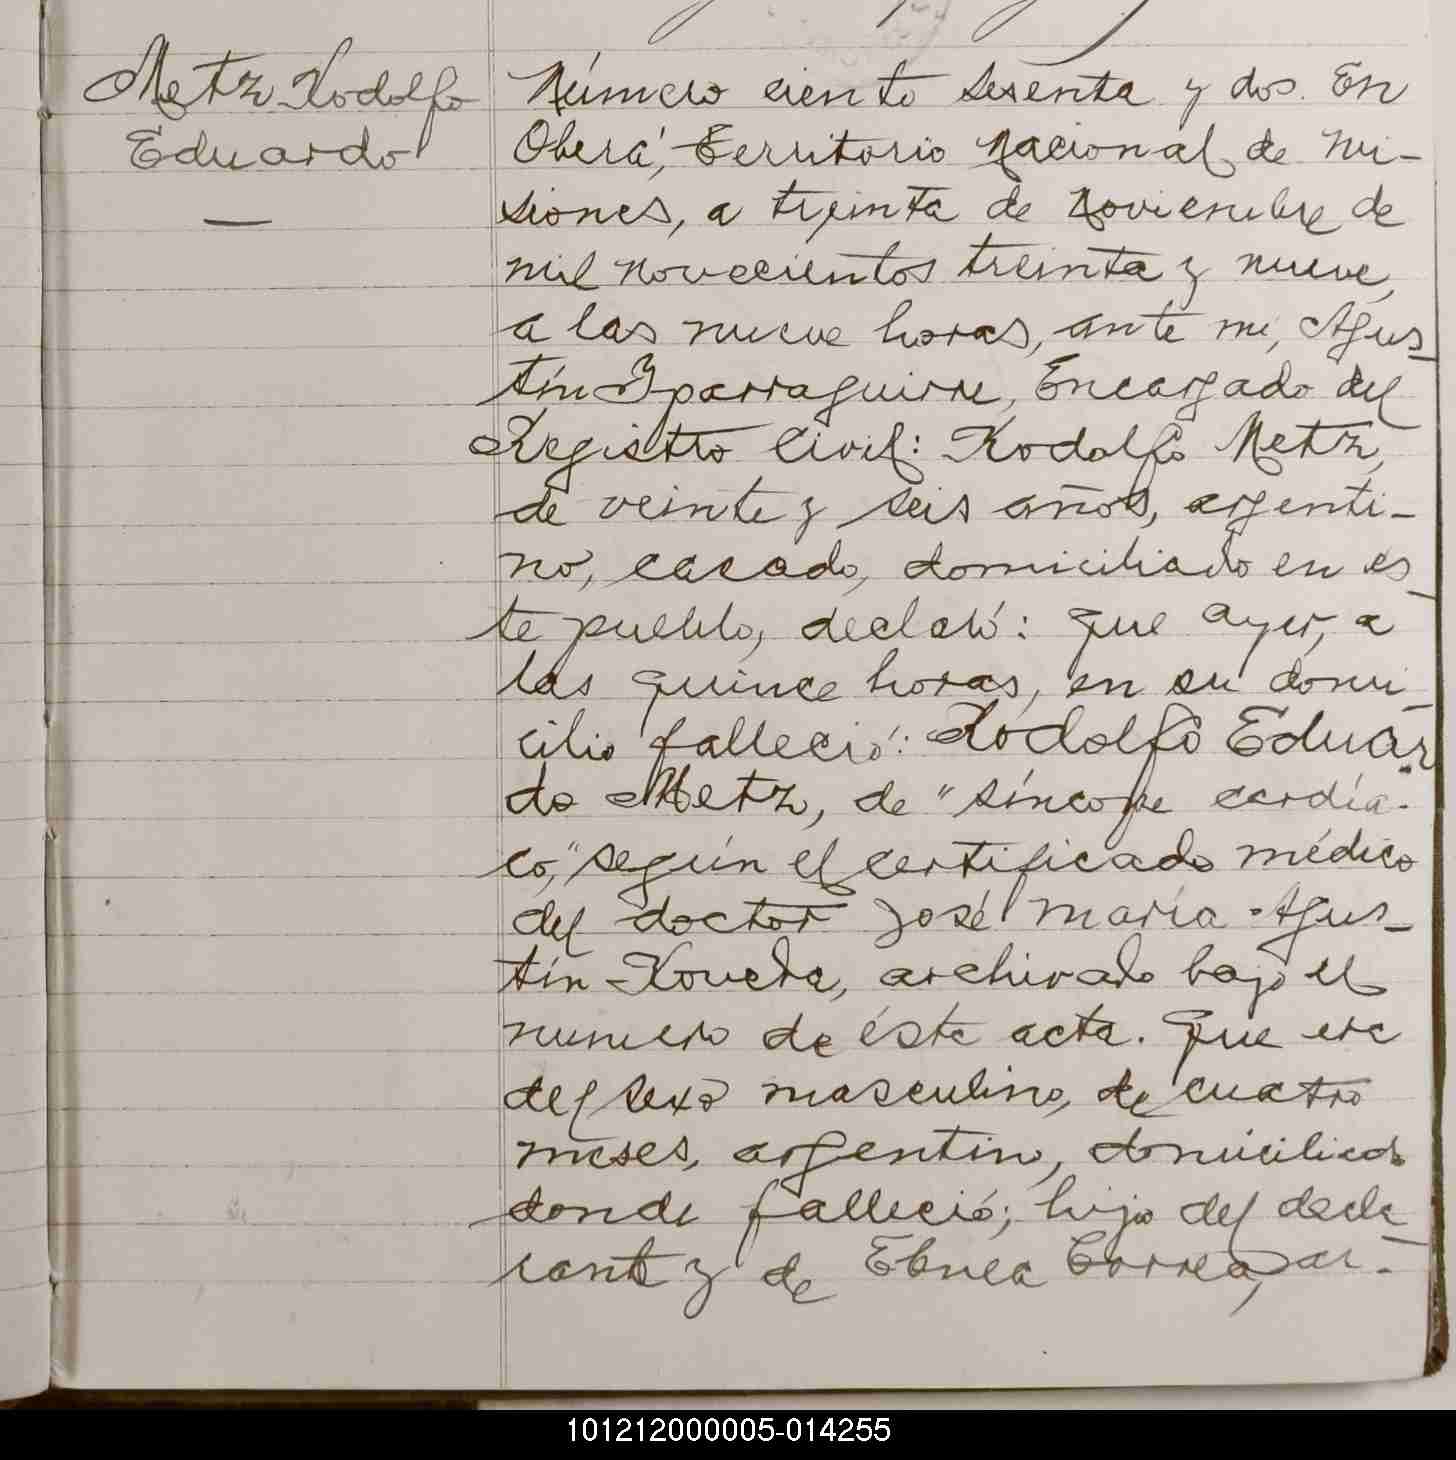 Metz Rodolfo
Eduardo
Número ciento sesenta y dos. En
Oberá, Territorio Nacional de Mi-
siones, a treinta de Noviembre de
mil novecientos treinta y nueve,
a las nueve horas, ante mi, Agus-
tín Yparraguirre, Encargado del
Registro Civil: Rodolfo Metz,
de veinte y seis años, argenti-
no, casado, domiciliado en es-
te pueblo, declaró: que ayer, a
las quince horas, en su domi-
cilio falleció: Rodolfo Eduar-
do Metz, de "síncope cardía-
co," según el certificado médico
del doctor José María Agus-
tín archivado bajo el
numero de éste acta. Que era
del sexo masculino, de cuatro
meses, argentino, domiciliado
donde falleció; hijo del decla-
rante y de Correa, ar-
101212000005-014255